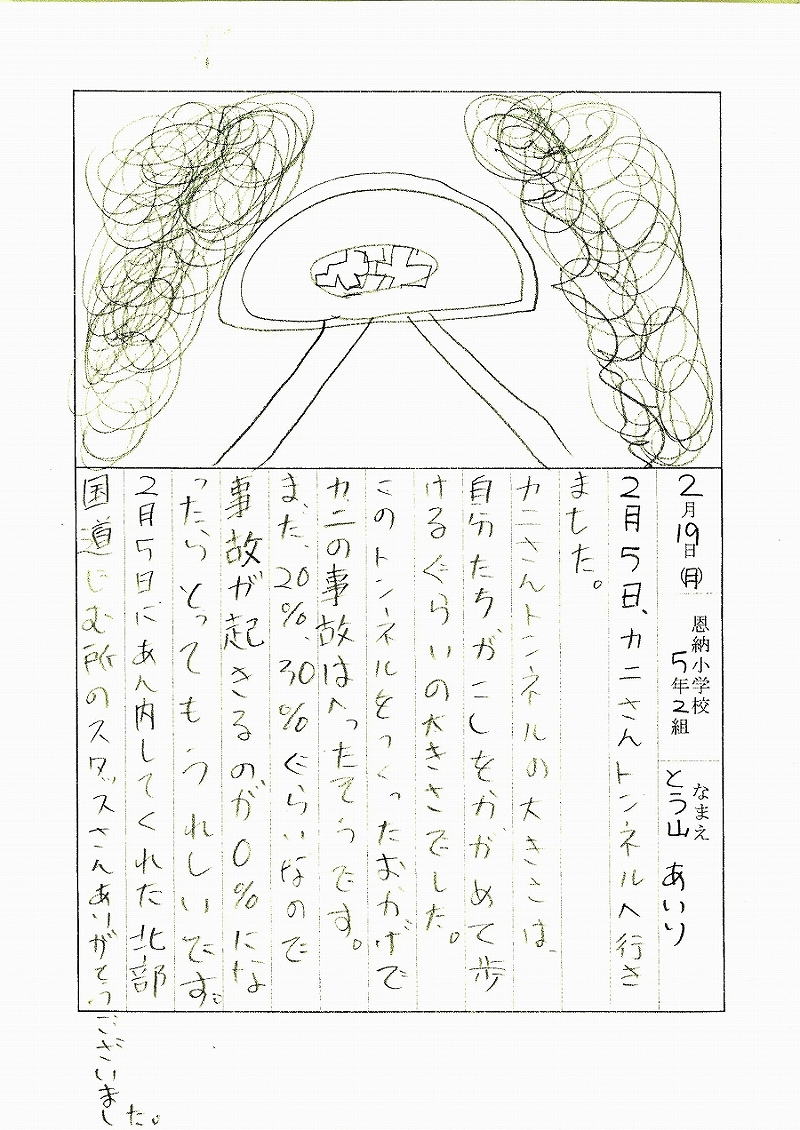 2月19日(月)
恩納小学校
5年2組
なまえ
とう山 あいり
2月5日、カニさんトンネルへ行き
ました。
カニさんトンネルの大きさは、
自分たちがこしをかがめて歩
けるぐらいの大きさでした。
このトンネルをつくったおかげで
カニの事故はへったそうです。
まだ、20%、30%ぐらいなので
事故が起きるのが0%にな
ったらとってもうれしいです。
2月5日にあん内してくれた北部
国道じむ所のスタッフさんありがとうございました。